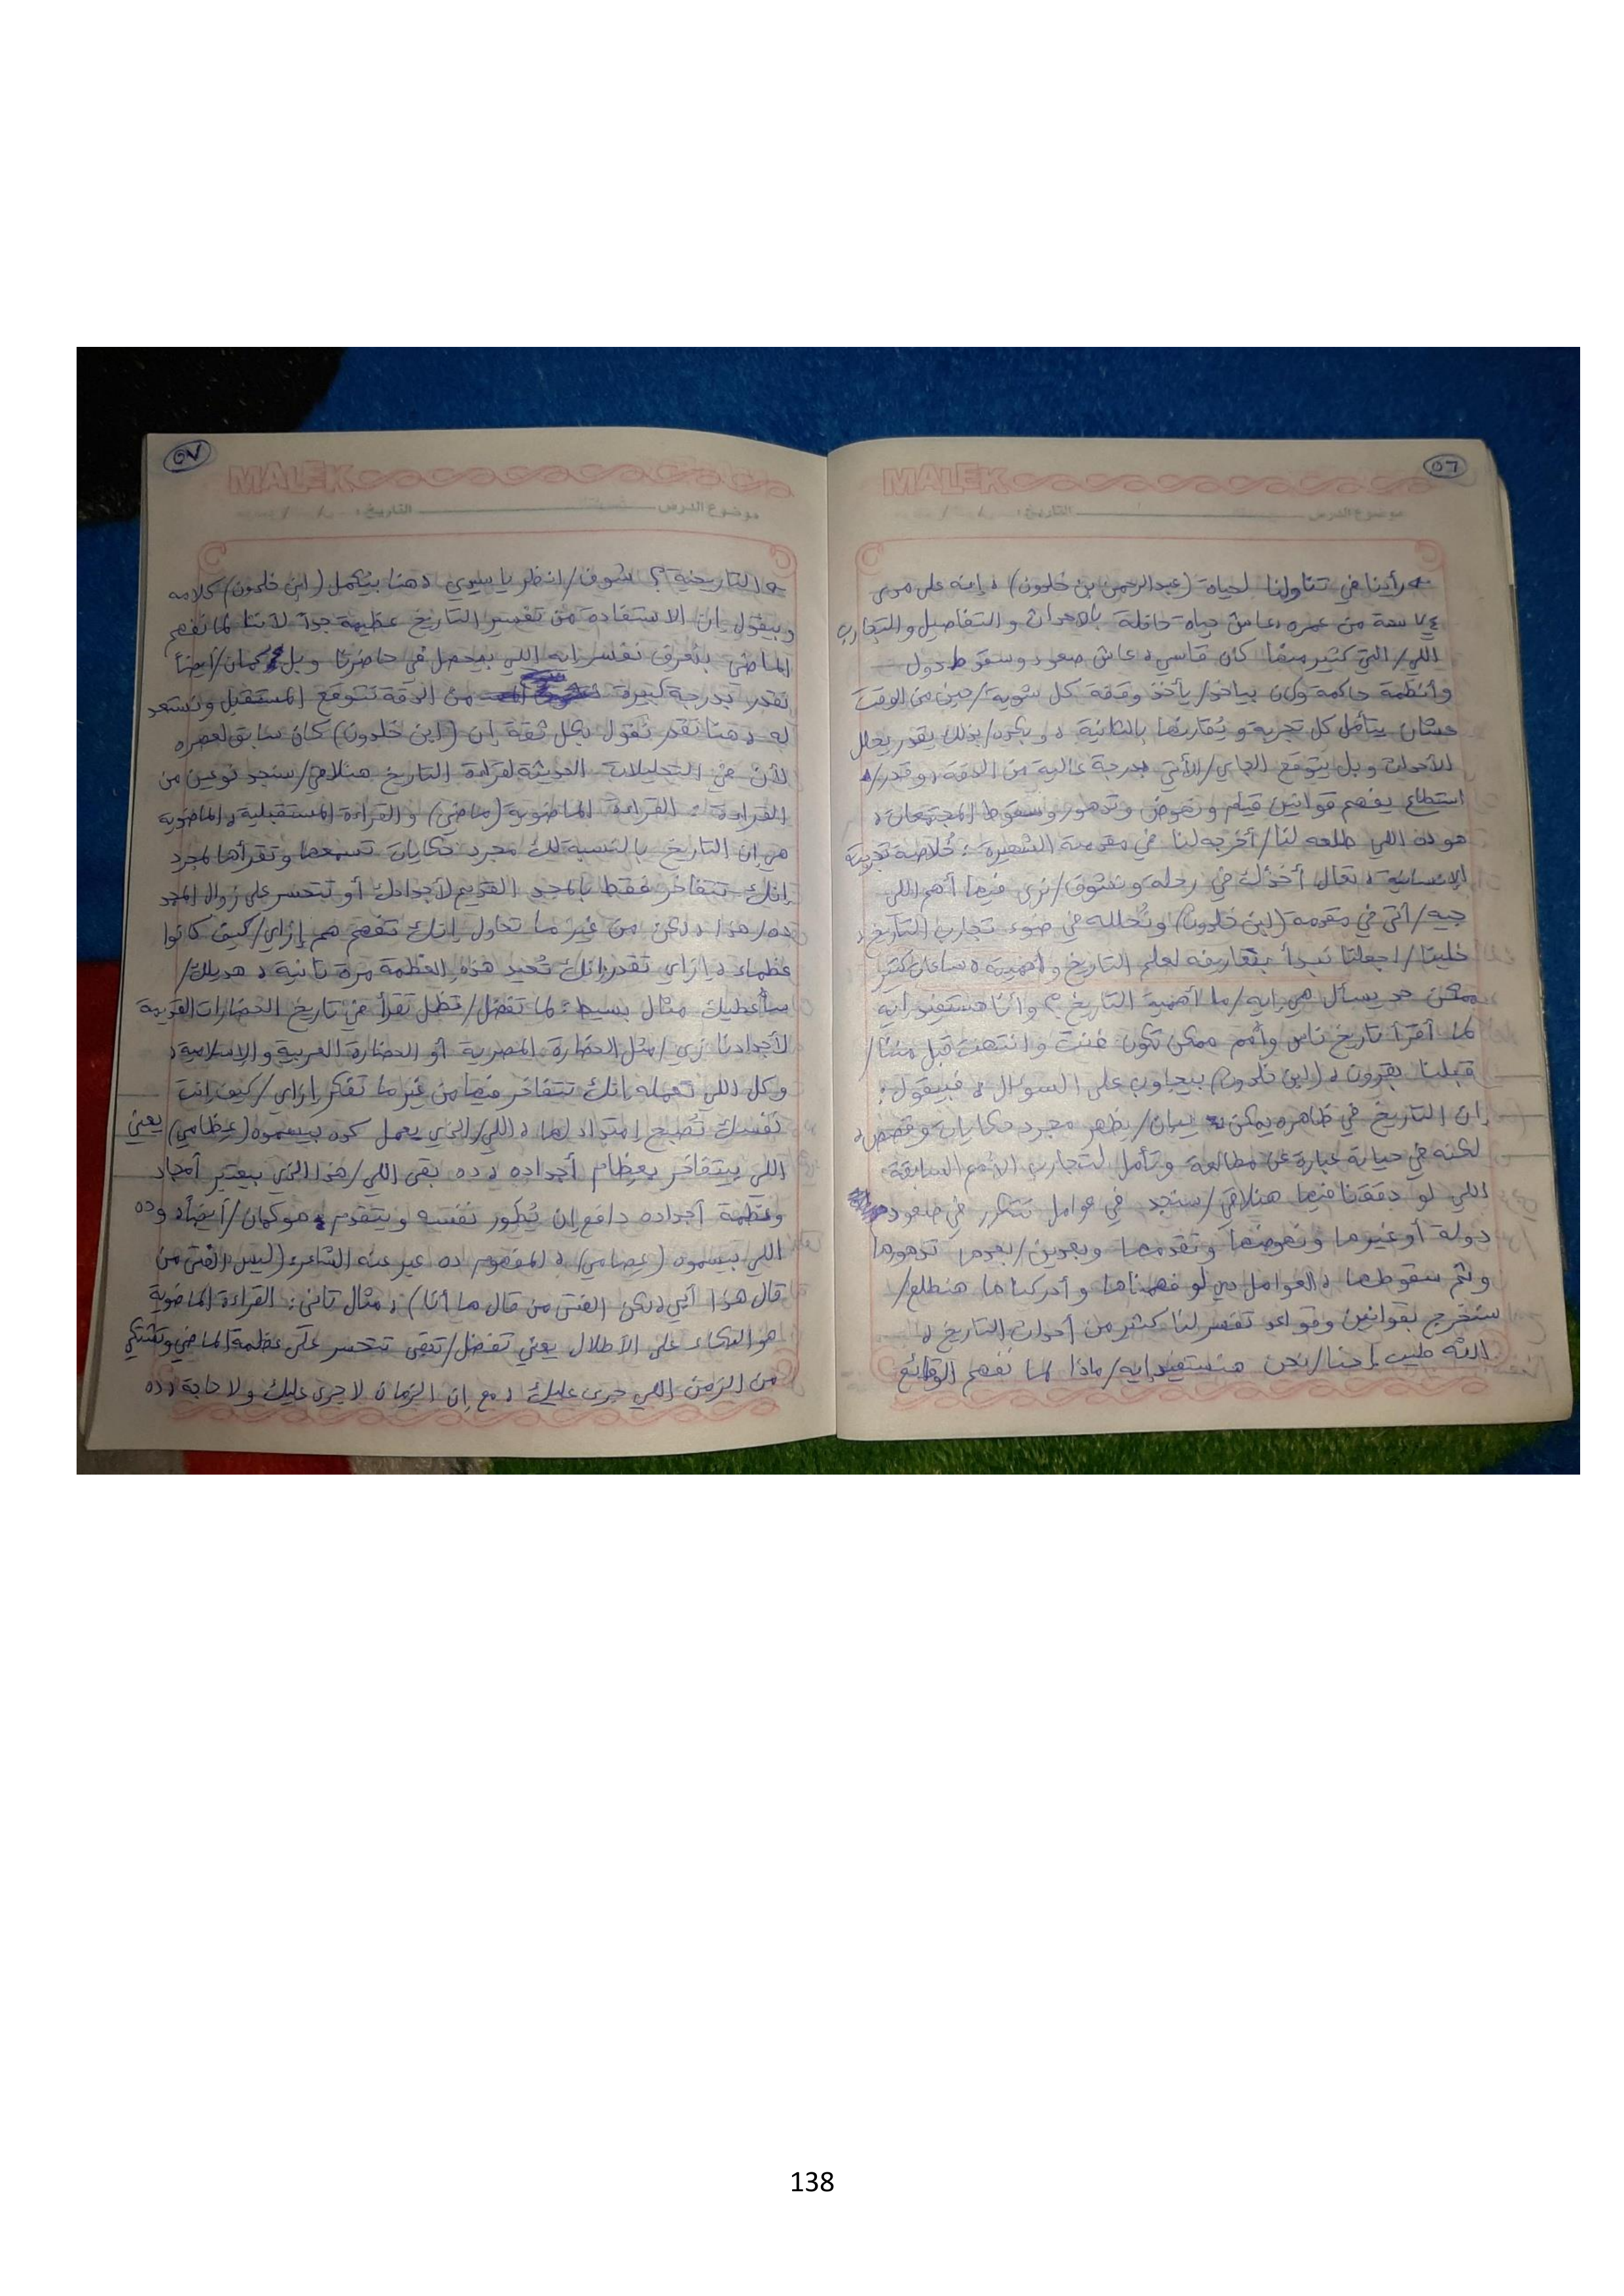 ٥٦
MALEK
موضوع الدرس التاريخ: / /
رأينا في تناولنا لحياة (عبدالرحمن بن خلدون) ، إنه على مدى
٧٤ سنة من عمره ، عاش حياة حافلة بالأحداث والتفاصيل والتجارب
اللي/التي كثير منها كان قاسي ، عاش صعود وسقوط دول
وأنظمة حاكمة وكان بياخد/يأخذ وقفة كل شوية/حين من الوقت
عشان يتأمل كل تجربة ويُقارنها بالثانية ، و بكده/بذلك يقدر يحلل
الأحداث وبل يتوقع الجاي/الأتي بدرجة عالية من الدقة ، وقدر/
استطاع يفهم قوانين قيام ونهوض وتدهور وسقوط المجتمعات ،
هو ده اللي طلعه لنا/أخرجه لنا في مقدمته الشهيرة : خُلاصة تجربته
الإنسانية ، تعال أخذك في رحلة ونشوف/نرى فيها أهم اللي
جيه/أتى في مقدمة (ابن خلدون) ونُحلله في ضوء تجارب التاريخ ،
خلينا/اجعلنا نبدأ بتعاريفه لعلم التاريخ وأهميته ، ساعات كتير
ممكن حد يسأل هي إيه/ما أهمية التاريخ ؟ وأنا هستفيد إيه
لما أقرأ تاريخ ناس وأمم ممكن تكون فنت وانتهت قبل مننا/
قبلنا بقرون ، (ابن خلدون) بيجاوب على السؤال ، فبيقول :
إن التاريخ في ظاهره يمكن يبان/يظهر مجرد حكايات وقصص ،
لكنه في عبارة عن مطالعة وتأمل لتجارب الأمم السابقة
اللي لو دققنا فيها هنلاقي/سنجد في عوامل تتكرر في صعود
دولة أو غيرها ونهوضها وتقدمها وبعدين/بعدها تدهورها
وثم سقوطها ، العوامل دي لو فهمناها وأدركناها هنطلع/
سنخرج بقوانين وقواعد تفسر لنا كثير من أحداث التاريخ ،
الله طيب إحنا/نحن هنستفيد إيه/ماذا لما نفهم الوقائع
٥٧
MALEK
موضوع الدرس التاريخ: / /
التاريخية ؟ شوف/انظر يا سيدي ، هنا بيكمل (ابن خلدون) كلامه
وبيقول إن الاستفادة من تفسير التاريخ عظيمة جداً لأننا لما نفهم
الماضي بنعرف نفسر إيه اللي بيحصل في حاضرنا وبل كمان/أيضاً
نقدر بدرجة كبيرة من الدقة نتوقع المستقبل ونستعد
له ، هنا نقدر نقول بكل ثقة إن (ابن خلدون) كان سابق لعصره
لأن في التحليلات الحديثة لقراءة التاريخ هنلاقي/سنجد نوعين من
القراءة : القراءة الماضوية (ماضي) والقراءة المستقبلية ، الماضوية
هي إن التاريخ بالنسبة لك مجرد حكايات تسمعها وتقرأها لمجرد
إنك تتفاخر فقط بالمجد القديم لأجدادك أو تتحسر على زوال المجد
ده/هذا ، لكن من غير ما تحاول إنك تفهم هم إزاي/كيف كانوا
عظماء ، إزاي تقدر إنك تُعيد هذه العظمة مرة تانية ، هديلك/
سأعطيك مثال بسيط : لما تفضل/تظل تقرأ في تاريخ الحضارات القديمة
لأجدادنا زي/مثل الحضارة المصرية أو الحضارة العربية والإسلامية ،
وكل اللي تعمله إنك تتفاخر فيها من غير ما تفكر إزاي/كيف إنت
نفسك تُصبح إمتداد لها ، اللي/الذي يعمل كده بيسموه (عِظامي) يعني
اللي بيتفاخر بعظام أجداده ، ده بقى اللي/هذا الذي بيعتبر أمجاد
وعَظَمة أجداده دافع إن يُطور نفسه ويتقدم هو كمان/أيضاً ، وده
اللي بيسموه (عِصامي) ، المفهوم ده عبر عنه الشاعر: (ليس الفتى من
قال هذا أبي ، لكن الفتى من قال ها أنا) ، مثال تاني : القراءة الماضوية
هو البكاء على الأطلال يعني تفضل/تبقى تتحسر على عظمة الماضي وتشتكي
من الزمن اللي جرى عليك ، مع إن الزمان لا جرى عليك ولا حاجة ، ده
138